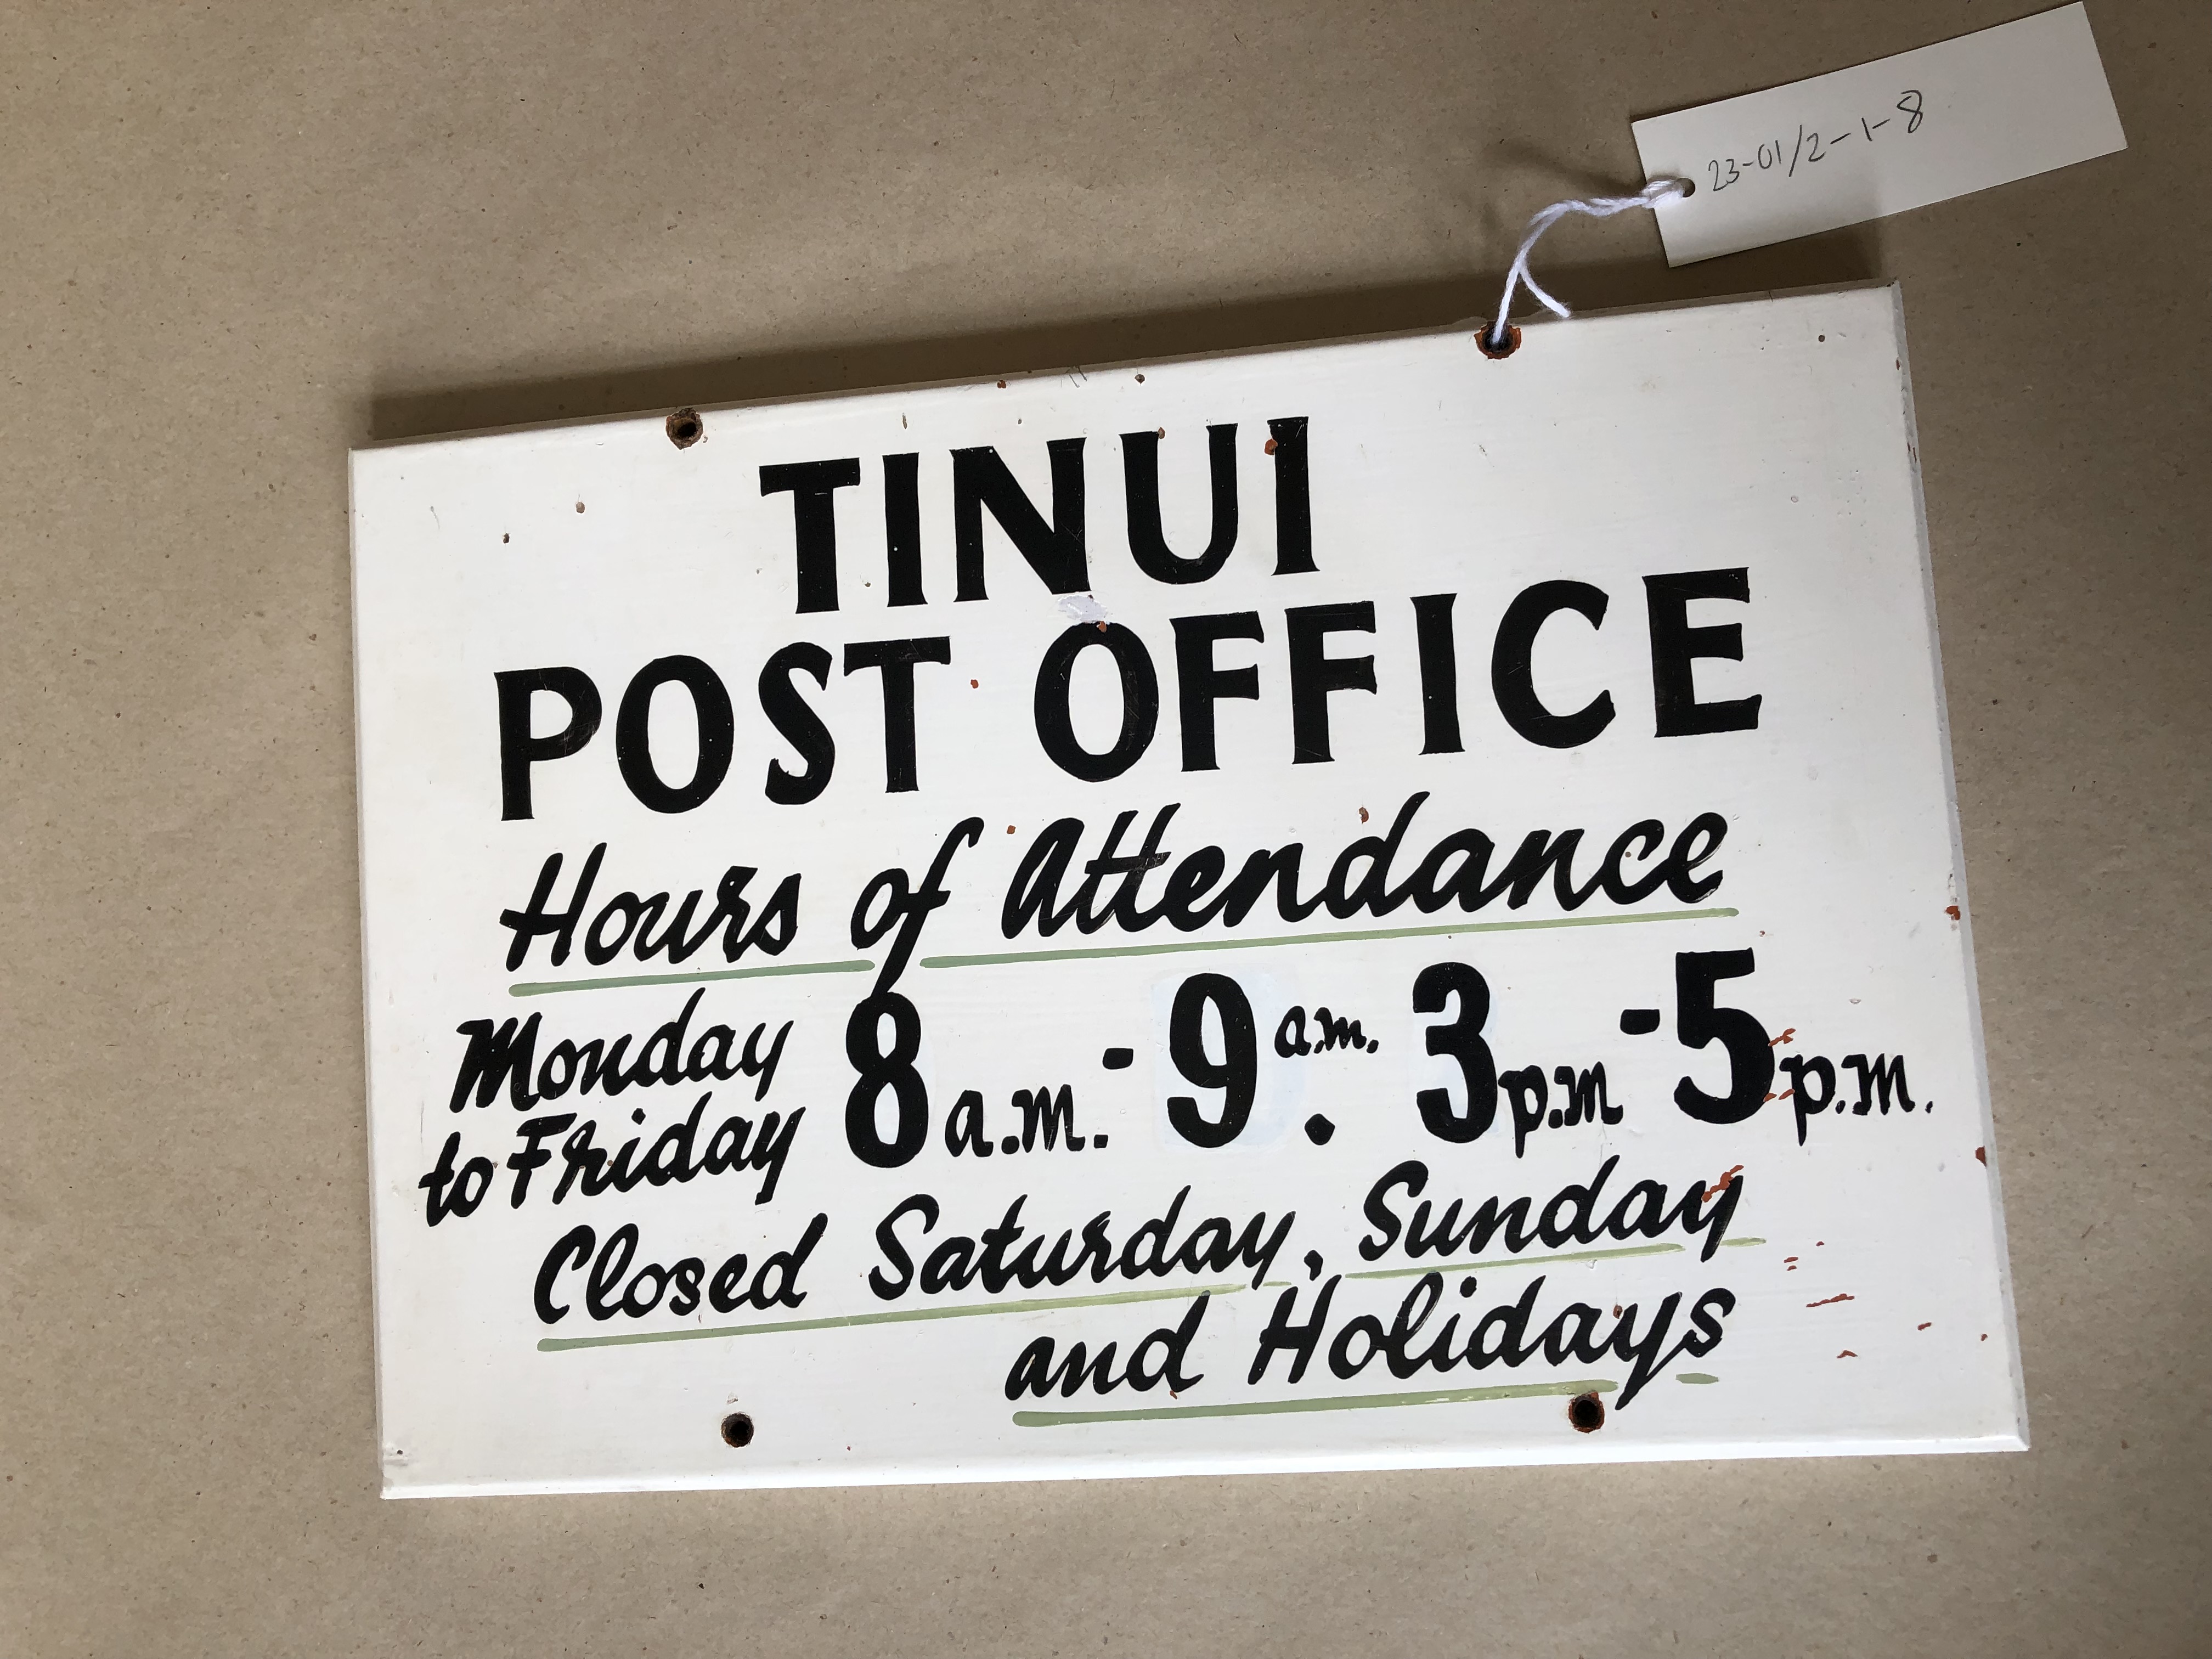 TINUI
POST OFFICE
Hours of Attendance
Monday
to Friday 8 a.m. - 9 a.m. . 3 p.m - 5 p.m.
Closed Saturday, Sunday
and Holidays
23-01/2-1-8